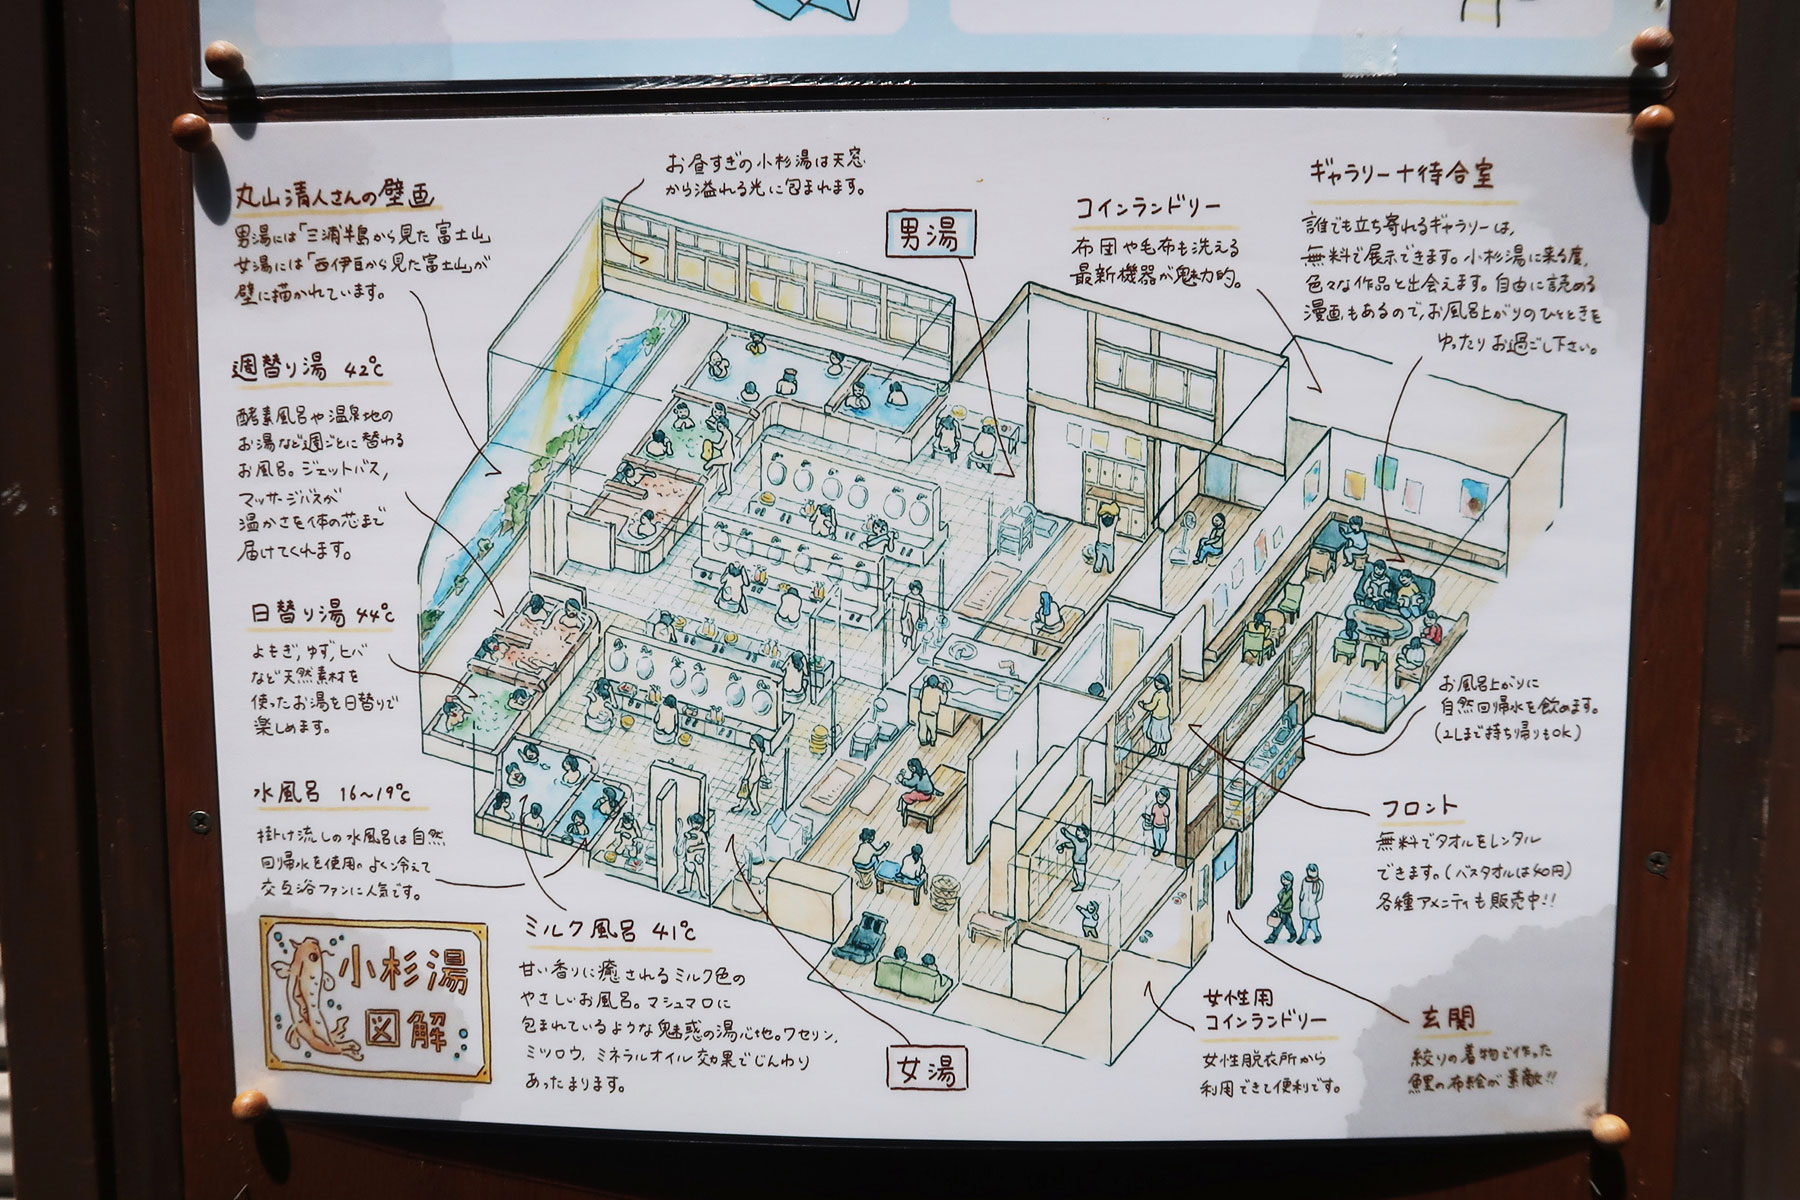 丸山清人さんの壁画
男湯には「三浦半島から見た富士山」
女湯には「西伊豆から見た富士山」が
壁に描かれています。
お昼すぎの小杉湯は天窓
から溢れる光に包まれます。
男湯
コインランドリー
布団や毛布も洗える
最新機器が魅力的。
ギャラリー＋待合室
誰でも立ち寄れるギャラリーは、
無料で展示できます。小杉湯に来る度、
色々な作品と出会えます。自由に読める
漫画もあるので、お風呂上がりのひとときを
ゆったりお過ごし下さい。
週替り湯 42℃
酵素風呂や温泉地の
お湯など週ごとに替わる
お風呂。ジェットバス,
マッサージバスが
温かさを体の芯まで
届けてくれます。
日替り湯 44℃
よもぎ,ゆず,ヒバ
など天然素材を
使ったお湯を日替りで
楽しめます。
水風呂 16〜19℃
掛け流しの水風呂は自然
回帰水を使用。よく冷えて
交互浴ファンに人気です。
小杉湯
図解
ミルク風呂 41℃
甘い香りに癒されるミルク色の
やさしいお風呂。マシュマロに
包まれているような魅惑の湯心地。ワセリン,
ミツロウ,ミネラルオイル効果でじんわり
あったまります。
女湯
お風呂上がりに
自然回帰水を飲めます。
(2Lまで持ち帰りもOK)
フロント
無料でタオルをレンタル
できます。(バスタオルは40円)
各種アメニティも販売中!!
女性用
コインランドリー
女性脱衣所から
利用できて便利です。
玄関
絞りの着物で作った
鯉の布絵が素敵!!